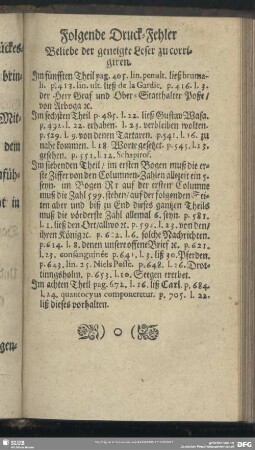 Folgende Druck-Fehler
Beliebe der geneigte Leser zu corri-
giren.
Im fünfften Theil pag. 405. lin. penult. ließ bruma-
li. p. 413. lin. ult. ließ de la Gardie, p. 416. l. 3.
der Herr Graf und Ober-Statthalter Posse/
von Arboga ꝛc.
Im sechsten Theil p. 485. l. 22. ließ Gustav Wasa.
p. 492. l. 22. erhaben. l. 25. verbleiben wolten.
p. 529. l. 9. von denen Tartaren. p. 541. l. 16. zu
nahe kommen. l. 18 Worte gesetzet. p. 545. l. 13.
gesehen. p. 551. l. 12. Schapirof.
Im siebenden Theil / im ersten Bogen muß die er-
ste Ziffer von den Columnen-Zahlen allezeit ein 5
seyn. im Bogen Rr auf der ersten Columne
muß die Zahl 599. stehen / auf der folgenden Sei-
ten aber und biß zu End dieses gantzen Theils
muß die vörderste Zahl allemal 6. seyn. p. 581.
l. 2. ließ den Ort / allwo ꝛc. p. 591. l. 23. von den /
ihren König ꝛc. p. 602. l. 6. solche Nachrichten.
p. 614. l. 8. denen unser offene Brief ꝛc. p. 621.
l. 23. consanguinée p. 641. l. 3. liß 30. Pferden.
p. 643. lin. 25. Niels Posse. p. 648. l. 26. Drot-
tningsholm. p. 653. l. 10. Stegen ererbet.
Im achten Theil pag. 672. l. 16. liß Carl. p. 684.
l. 24. quantocyus componeretur. p. 705. l. 22.
liß dieses vorhalten.